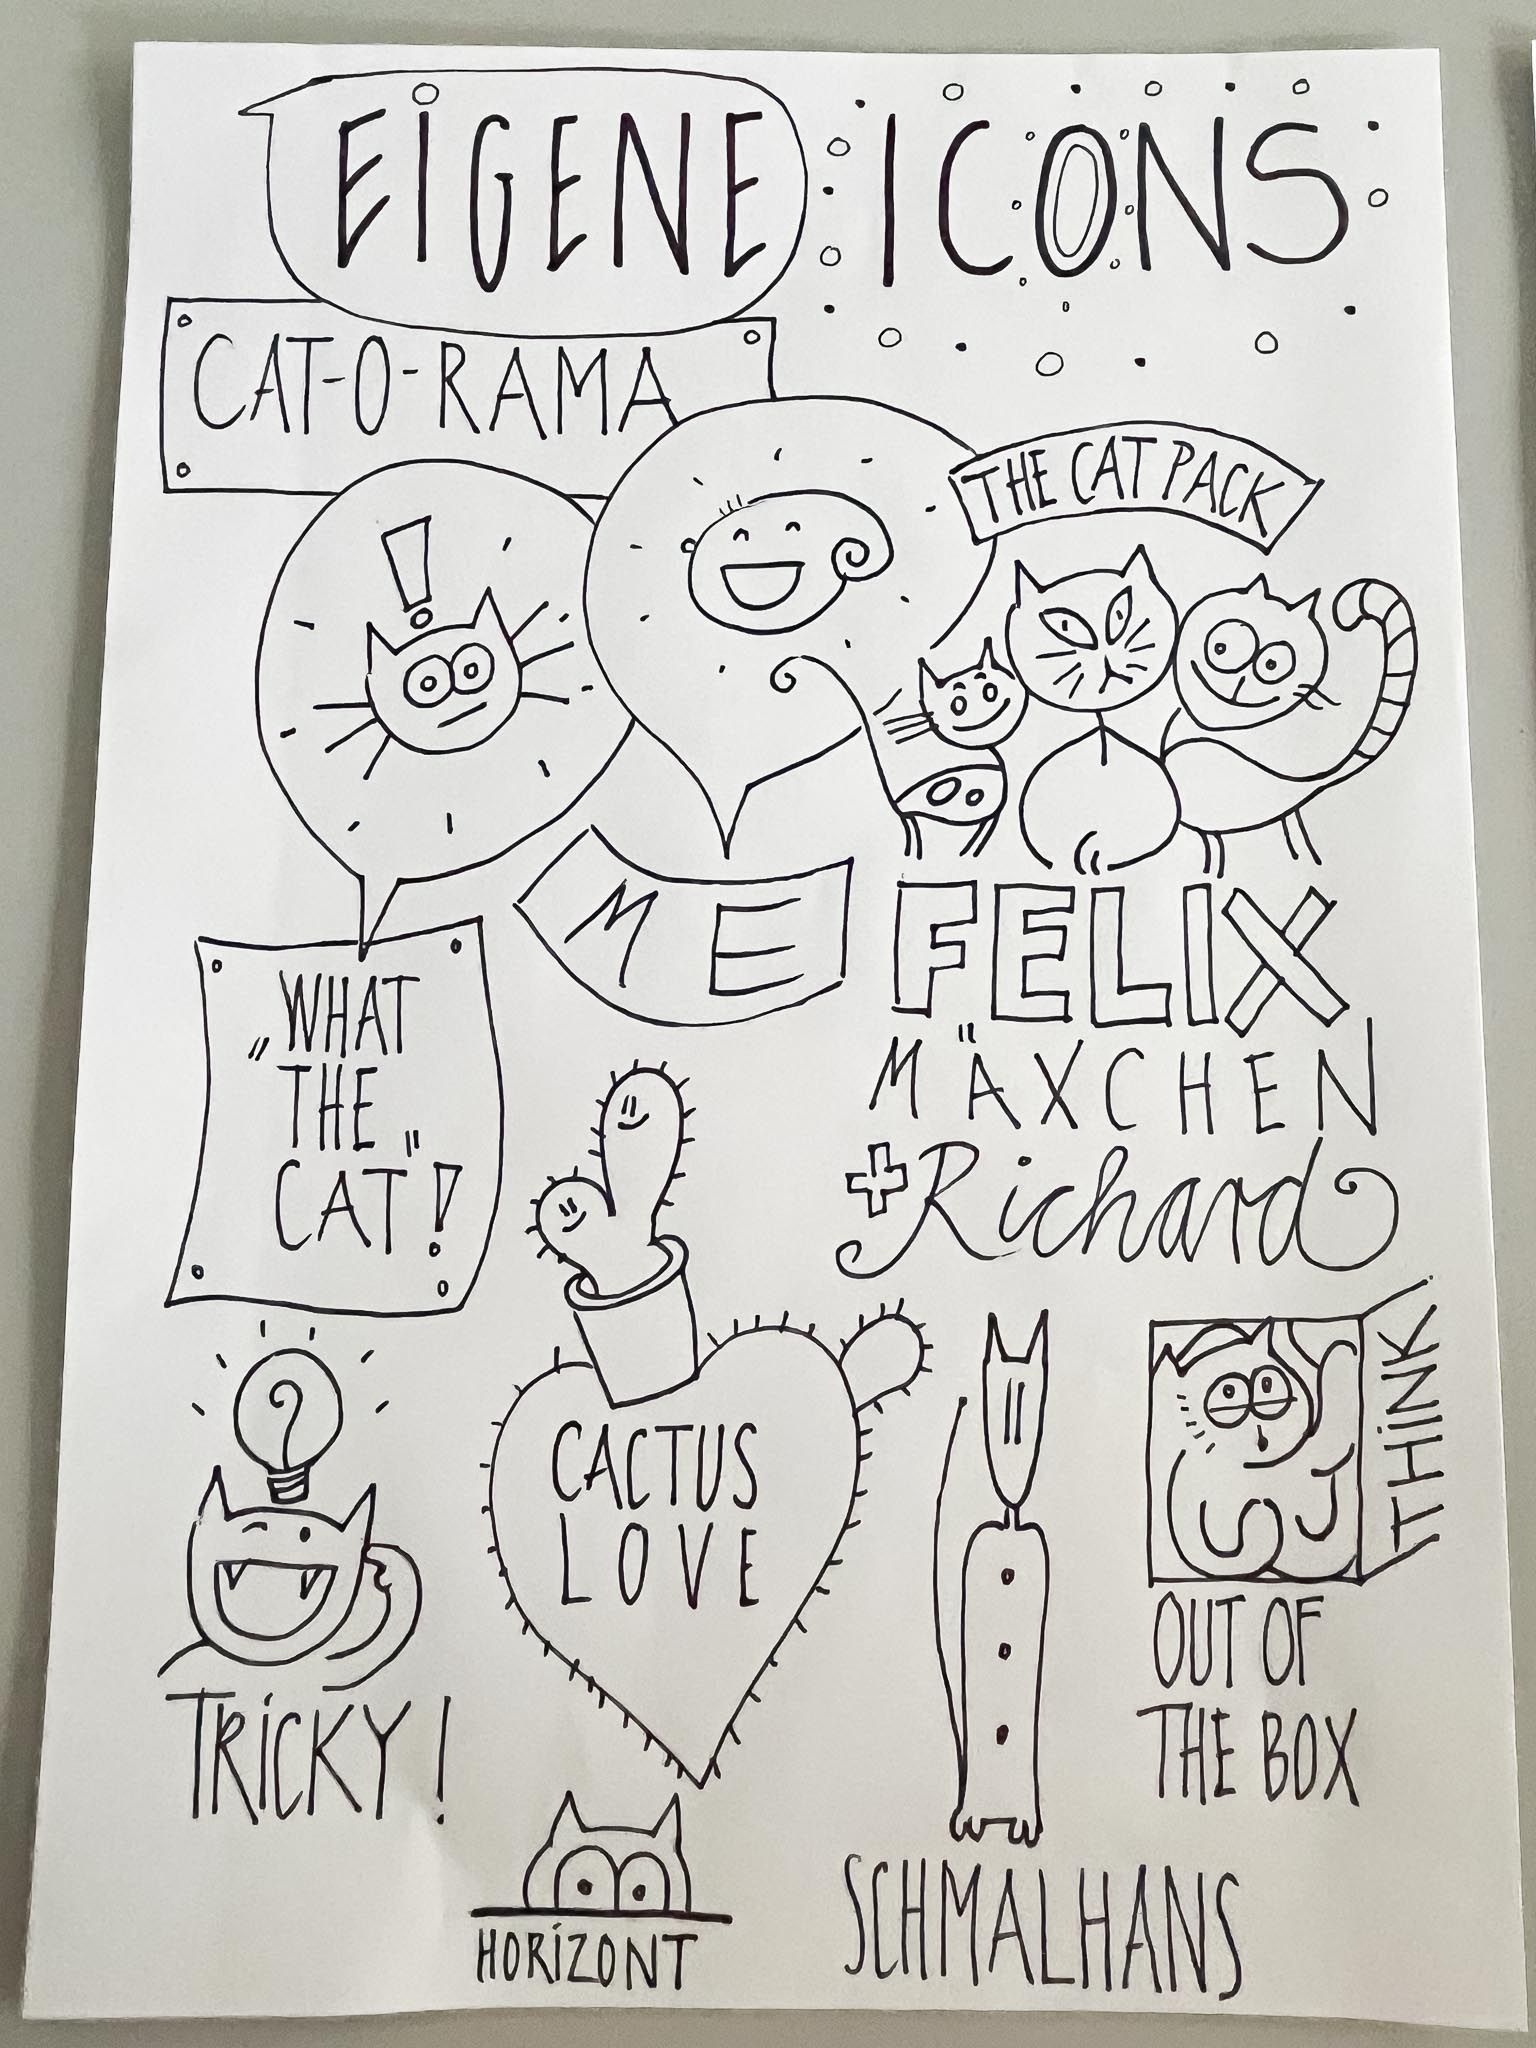 EIGENE ICONS
CAT-O-RAMA
THE CAT PACK
!
ME
FELIX
MÄXCHEN
+ Richard
„WHAT
THE
CAT"!
CACTUS
LOVE
?
TRICKY!
THINK!
OUT OF
THE BOX
HORIZONT
SCHMALHANS